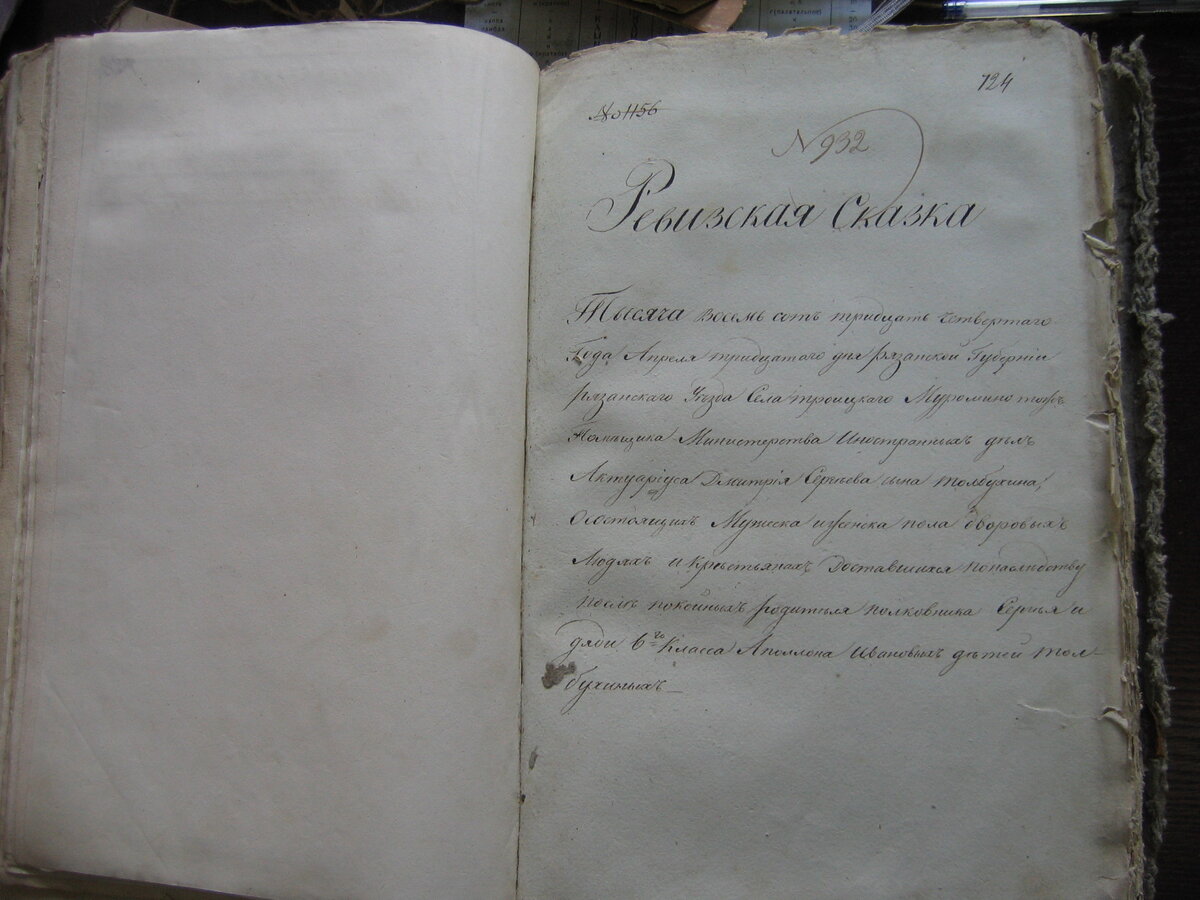 124
№ 1156
N 932
Ревизская Сказка
Тысяча восемь сотъ тридцать четвертаго
Года Апреля тридцатого дня рязанской Губерніи
рязанскаго Уѣзда Села троицкаго Муромино тожъ
Помѣщика Министерства Иностранныхъ дѣлъ
Актуаріуса Дмитрія Сергѣева сына толбухина,
осостоящихъ Мужеска иженска пола дворовыхъ
Людяхъ и крестьянахъ Доставшихся понаследству
послѣ покойныхъ родителя полковника Сергѣя и
дяди 6го Класса Аполлона Ивановыхъ дѣтей тол-
бухиныхъ